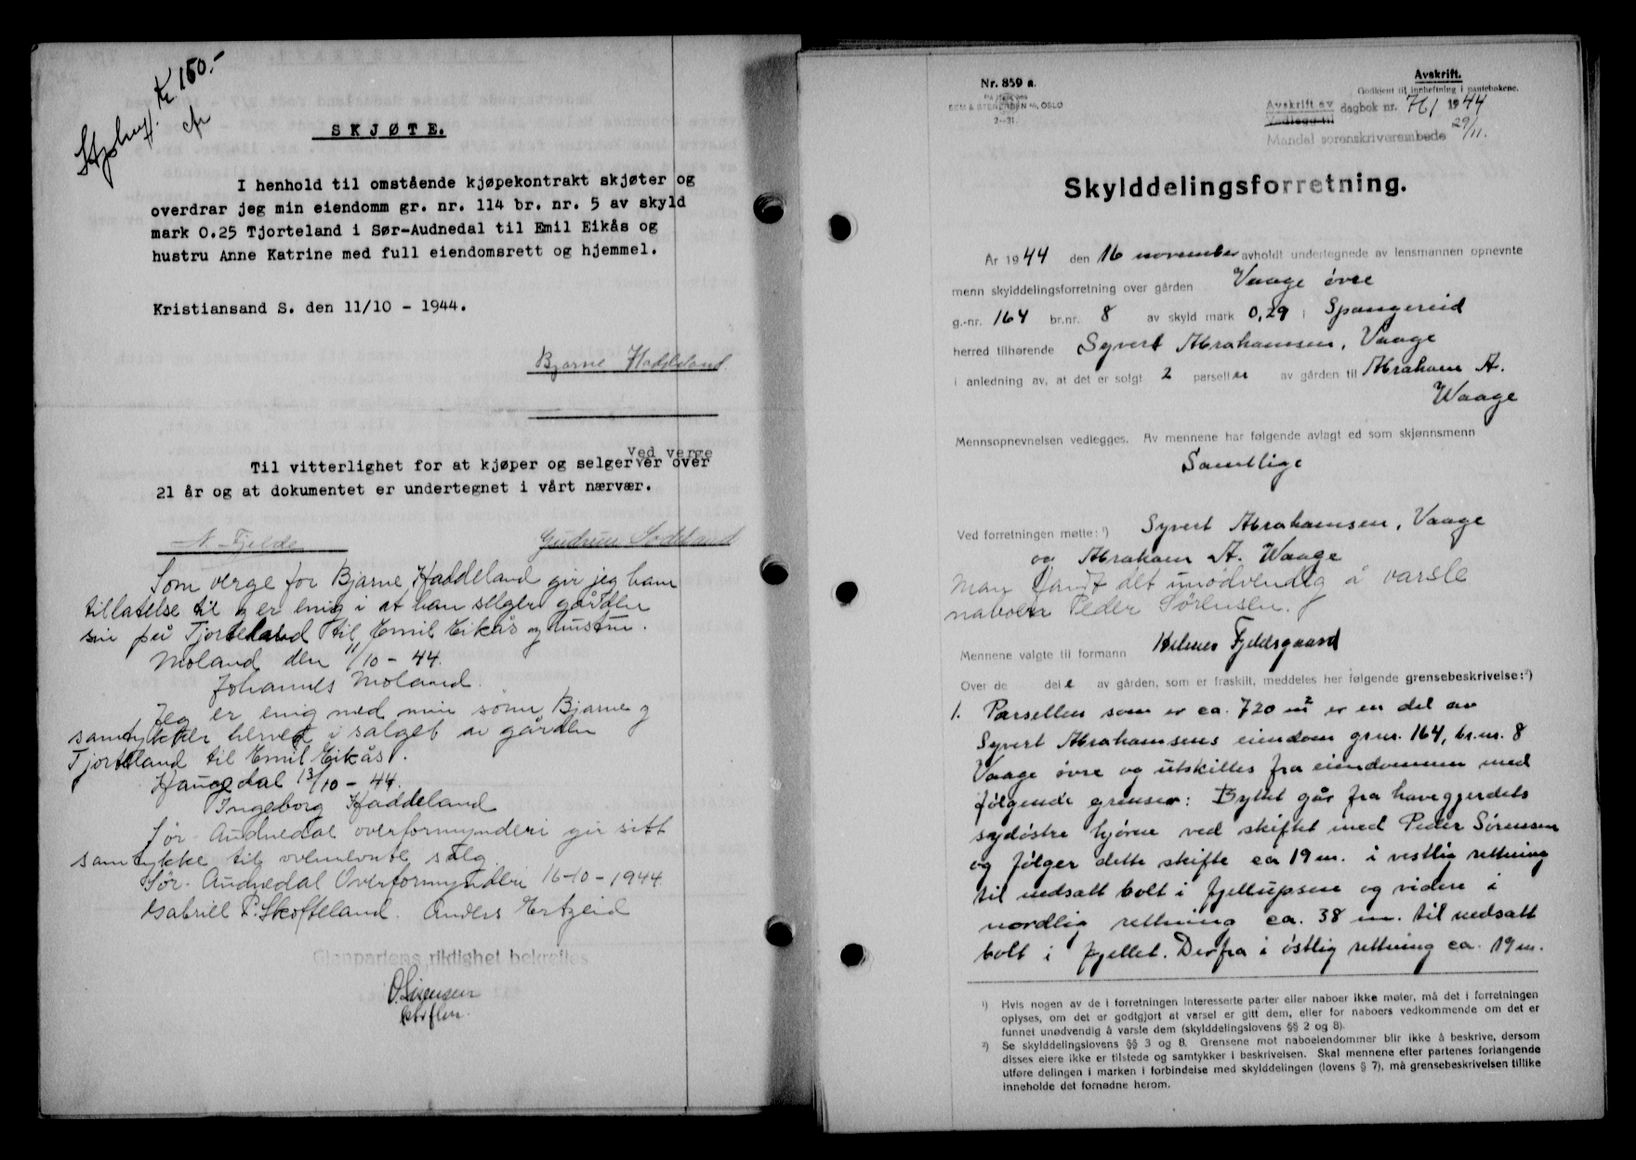 Kr. 150.-
SKJØTE.
I henhold til omstående kjøpekontrakt skjøter og
overdrar jeg min eiendomm gr. nr. 114 br. nr. 5 av skyld
mark 0.25 Tjorteland i Sør-Audnedal til Emil Eikås og
hustru Anne Katrine med full eiendomsrett og hjemmel.
Kristiansand S. den 11/10 - 1944.
Bjarne Haddeland
Ved verge
Til vitterlighet for at kjøper og selger er over
21 år og at dokumentet er undertegnet i vårt nærvær.
N. Fjelde Gudrun
Som verge for Bjarne Haddeland gir jeg ham
tillatelse til og er enig i at han selger gården
sin på Tjorteland til Emil Eikås og hustru.
Moland den 11/10 - 44.
Johannes Moland.
Jeg er enig med min sønn Bjarne og
samtykker herved i salget av gården
Tjorteland til Emil Eikås.
Haugdal 13/10 - 44.
Ingeborg Haddeland
Sør-Audnedal overformynderi gir sitt
samtykke til ovenevnte salg.
Sør-Audnedal Overformynderi 16-10-1944
Gabriel P. Skofteland. Anders Ertzeid
Gjenpartens riktighet bekreftes
O. Sørensen
Nr. 859 a.
SEM & STENERSEN A/S, OSLO
2-31.
Avskrift.
Godkjent til innheftning i pantebøkene.
Avskrift av dagbok nr. 761 1944
Vedlegg til 29/11.
Mandal sorenskriverembede
Skylddelingsforretning.
År 1944 den 16 november avholdt undertegnede av lensmannen opnevnte
menn skylddelingsforretning over gården Vaage övre
g.-nr. 164 br.nr. 8 av skyld mark 0,29 i Spangereid
herred tilhørende Syvert Abrahamsen, Vaage
i anledning av, at det er solgt 2 parseller av gården til Abraham A.
Waage
Mennsopnevnelsen vedlegges. Av mennene har følgende avlagt ed som skjønnsmenn
Samtlige
Ved forretningen møtte: ¹) Syvert Abrahamsen, Vaage
og Abraham A. Waage
Man fandt det unødvendig å varsle
naboen Peder Sørensen.
Mennene valgte til formann Helmer Fjeldsgaard
Over de dele av gården, som er fraskilt, meddeles her følgende grensebeskrivelse: ²)
1. Parsellen som er ca. 720 m² er en del av
Syvert Abrahamsens eiendom grnr. 164, br.nr. 8
Vaage övre og utskilles fra eiendommen med
følgende grenser: Byttet går fra havegjerdets
sydöstre hjörne ved skiftet med Peder Sörensen
og følger dette skifte ca 19 m. i vestlig retning
til nedsatt bolt i fjellupsen og videre i
nordlig retning ca. 38 m. til nedsatt
bolt i fjellet. Derfra i östlig retning ca. 19 m.
¹) Hvis nogen av de i forretningen interesserte parter eller naboer ikke møter, må det i forretningen
oplyses, om det er godtgjort at varsel er gitt dem, eller for naboers vedkommende om det er
funnet unødvendig å varsle dem (skylddelingslovens §§ 2 og 8).
²) Se skylddelingslovens §§ 3 og 8. Grensene mot naboeiendommer blir ikke å beskrive, dersom
disses eiere ikke er tilstede og samtykker i beskrivelsen. Skal mennene efter partenes forlangende
utføre delingen i marken i forbindelse med skylddelingen (lovens § 7), må grensebeskrivelsen tillike
inneholde det fornødne herom.